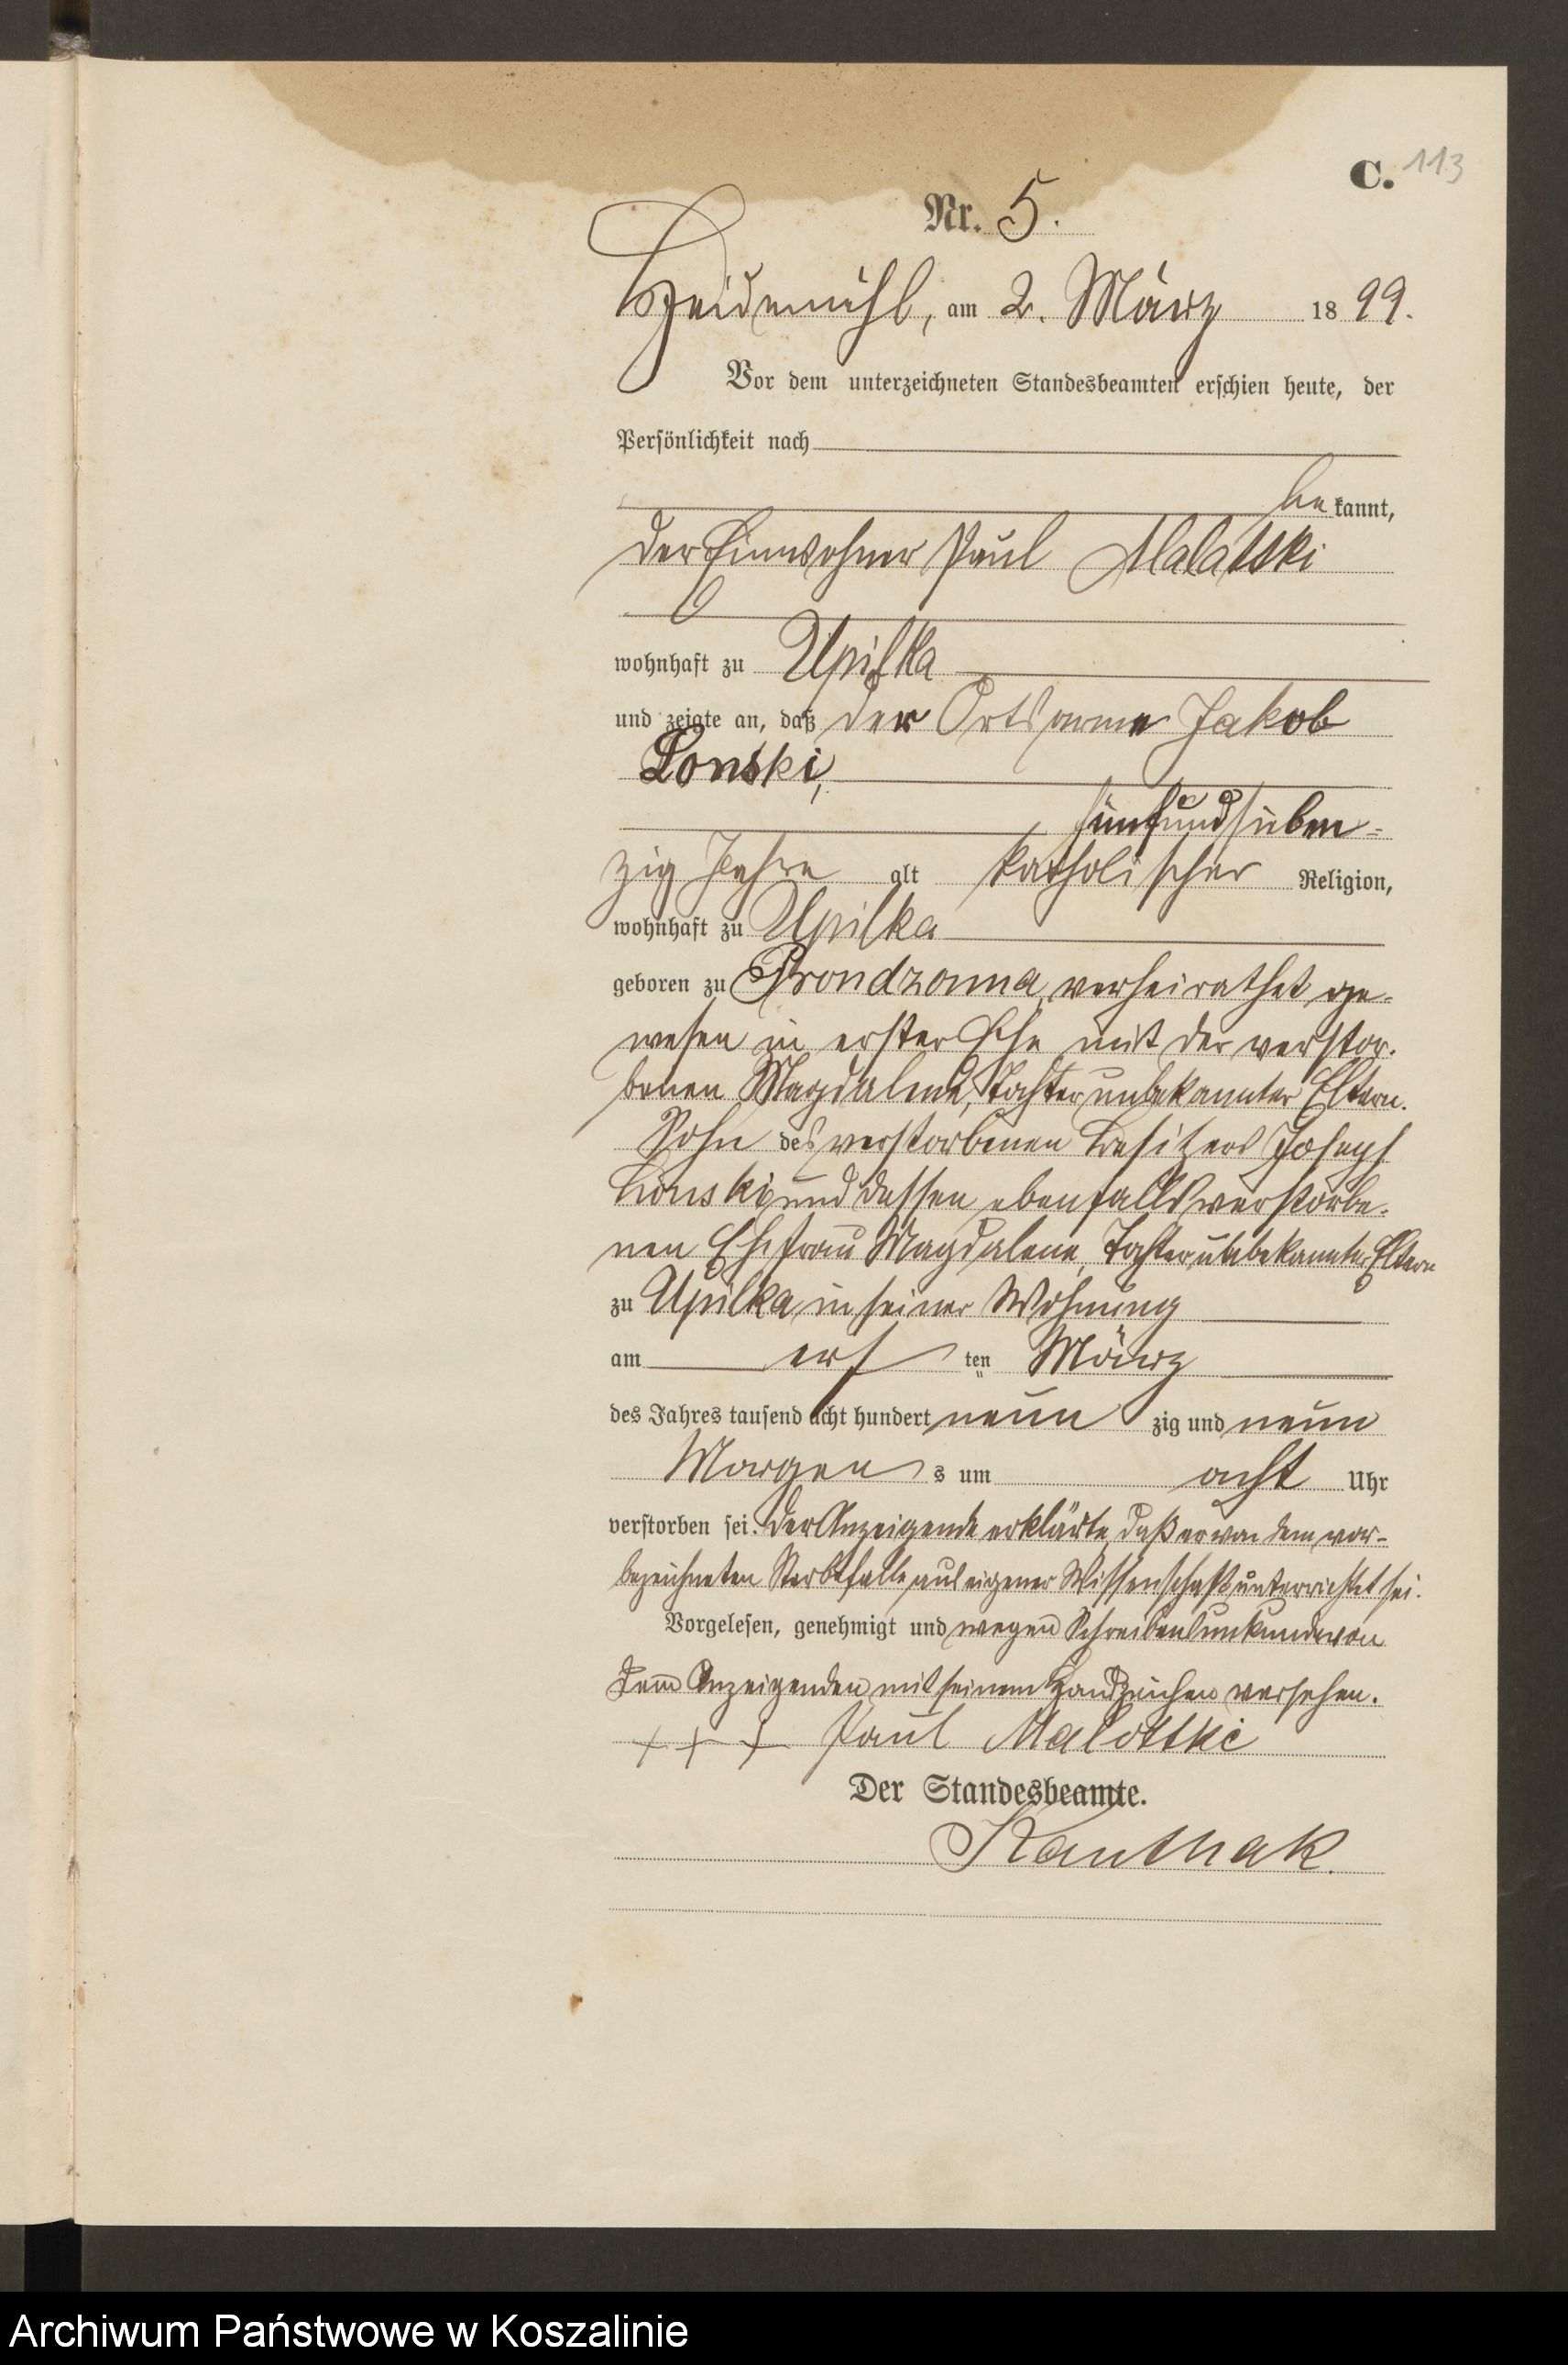 C. 113
Nr. 5.
Heidemühl, am 2. März 1899.
Vor dem unterzeichneten Standesbeamten erschien heute, der
Persönlichkeit nach
bekannt,
der Einwohner Paul Malotski
wohnhaft zu Upilka
und zeigte an, daß der Ortsarme Jakob
Lonski,
fünfundsieben-
zig Jahre alt katholischer Religion,
wohnhaft zu Upilka
geboren zu Prondzonna, verheirathet ge-
wesen in erster Ehe mit der verstor-
benen Magdalena, Tochter unbekannter Eltern.
Sohn des verstorbenen Besitzers Joseph
Lonski und dessen ebenfalls verstorbe-
nen Ehefrau Magdalene, Tochter unbekannter Eltern
zu Upilka in seiner Wohnung
am ersten März
des Jahres tausend acht hundert neunzig und neun
Morgens um acht Uhr
verstorben sei. Der Anzeigende erklärte, daß er von dem vor-
bezeichneten Sterbefalle aus eigener Wissenschaft unterrichtet sei.
Vorgelesen, genehmigt und wegen Schreibensunkunde von
dem Anzeigenden mit seinem Handzeichen versehen.
+ + + Paul Malottki
Der Standesbeamte.
Kanthak.
Archiwum Państwowe w Koszalinie